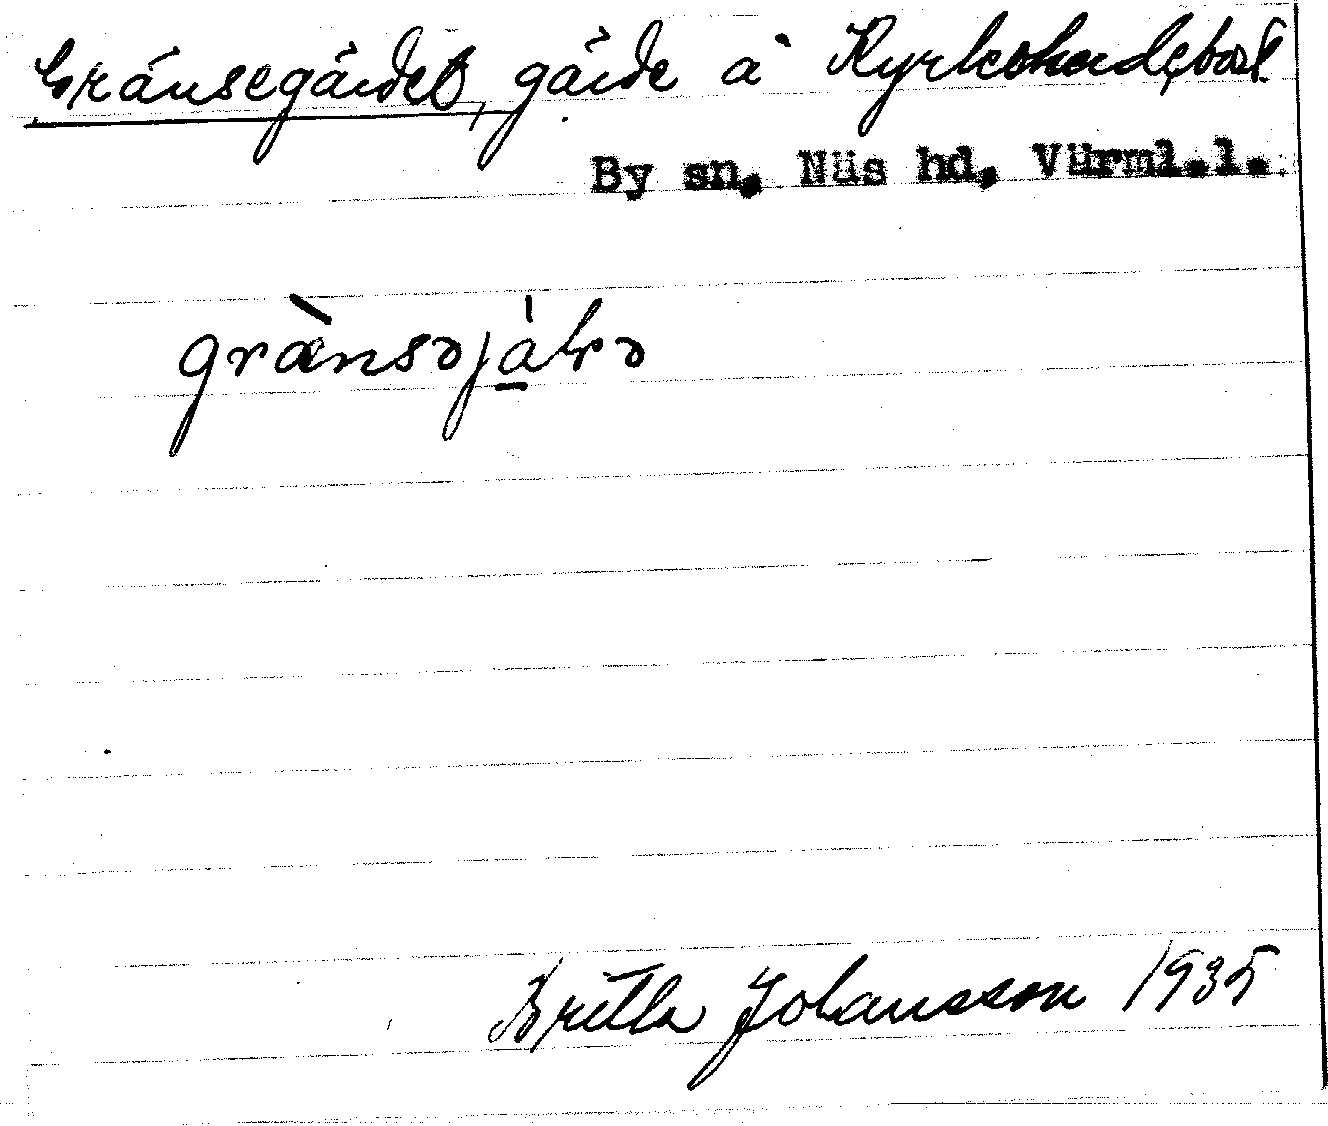 Gränsegärdet, gärde å Kyrkohedebost.
By sn, Näs hd, Värml.l.
grænsəjaɫɹə
Britta Johansson 1935